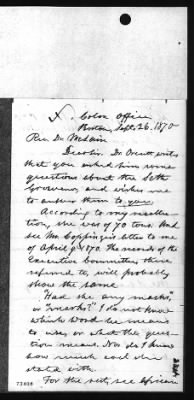 N. Colon Office
Boston, Sept. 26. 1870
Rev. Dr. McLain
Dear Sir. Dr. Orcutt writes
that you asked him some
questions about the Seth
Grosvenor, and wishes me
to answer them to you.
According to my recollec-
tion, she was of 70 tons. And
see Mr. Coppinger's letter to me
of April 9 1870. The records of the
Executive Committee, there
referred to, will probably
show the same.
"Had she any masks,"
or "marks?" I do not know
which word he means
to use, or what the ques-
tion means. Nor do I know
how much coal she
For the rest, see African
73018